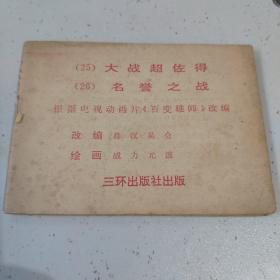 (25) 大战超佐得
(26) 名誉之战
根据电视动画片《百变雄师》改编
改编
绘画 成力 元波
三环出版社出版